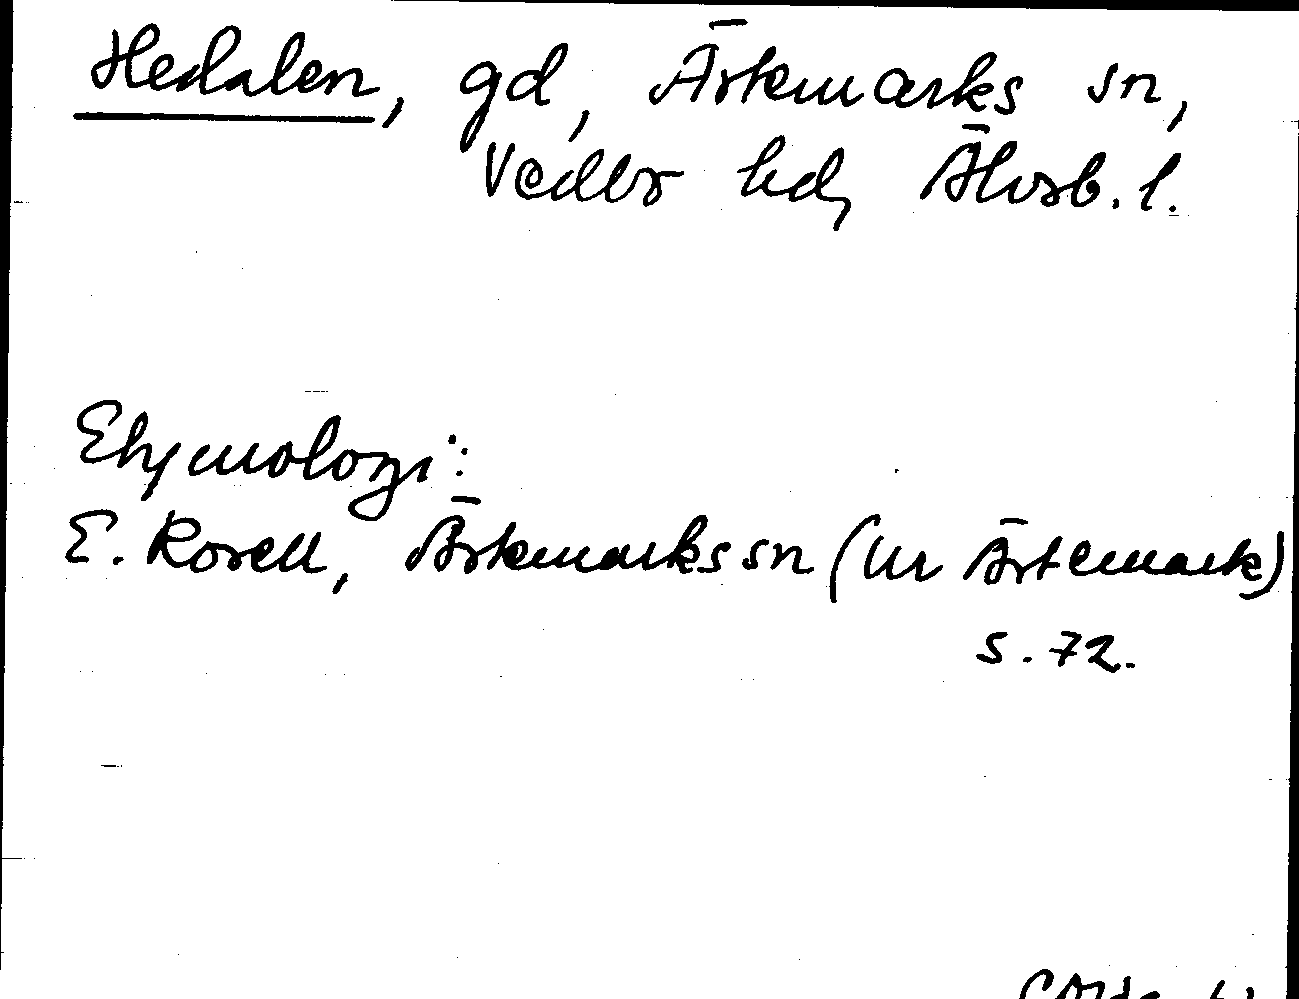 Hedalen, gd, Ärtemarks sn,
Vedbo hd, Älvsb. l.
Etymologi:
E. Rosell, Ärtemarks sn (ur Ärtemark)
s. 72.